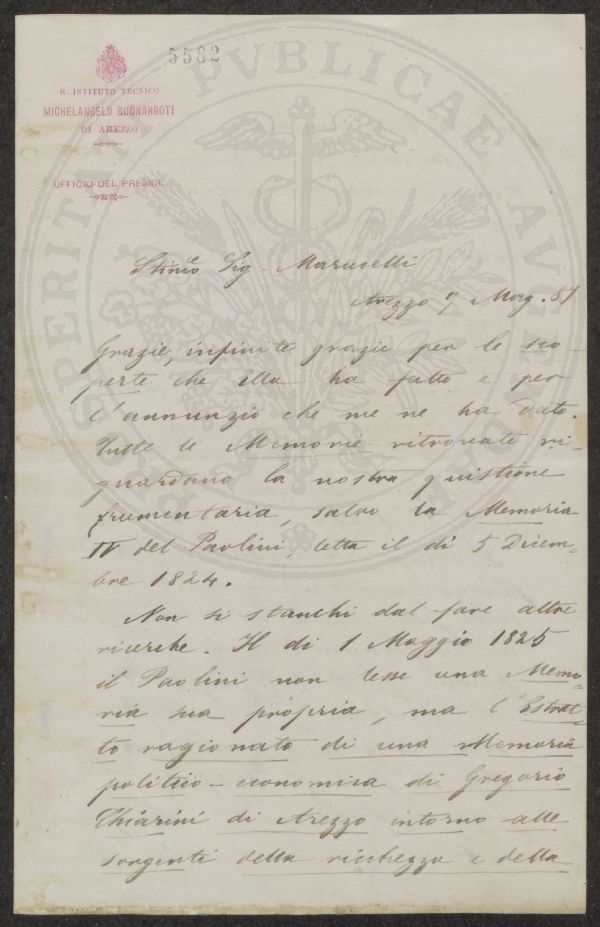 5582
R. ISTITUTO TECNICO
MICHELANGELO BUONARROTI
DI AREZZO
UFFICIO DEL PRESIDE
PROSPERITATI PVBLICAE AVGENDAE
Stimo Sig. Marucelli
Arezzo 7 Mag. 87
Grazie, infinite grazie per le sco-
perte che Ella ha fatto e per
l'annunzio che me ne ha dato.
Tutte le Memorie ritrovate ri-
guardano la nostra quistione
frumentaria, salvo la Memoria
IV del Paolini, letta il dì 5 Dicem-
bre 1824.
Non si stanchi dal fare altre
ricerche. Il dì 1 Maggio 1825
il Paolini non lesse una Memo-
ria sua propria, ma l'Estrat-
to ragionato di una Memoria
politico-economica di Gregorio
Chiarini di Arezzo intorno alle
sorgenti della ricchezza e della